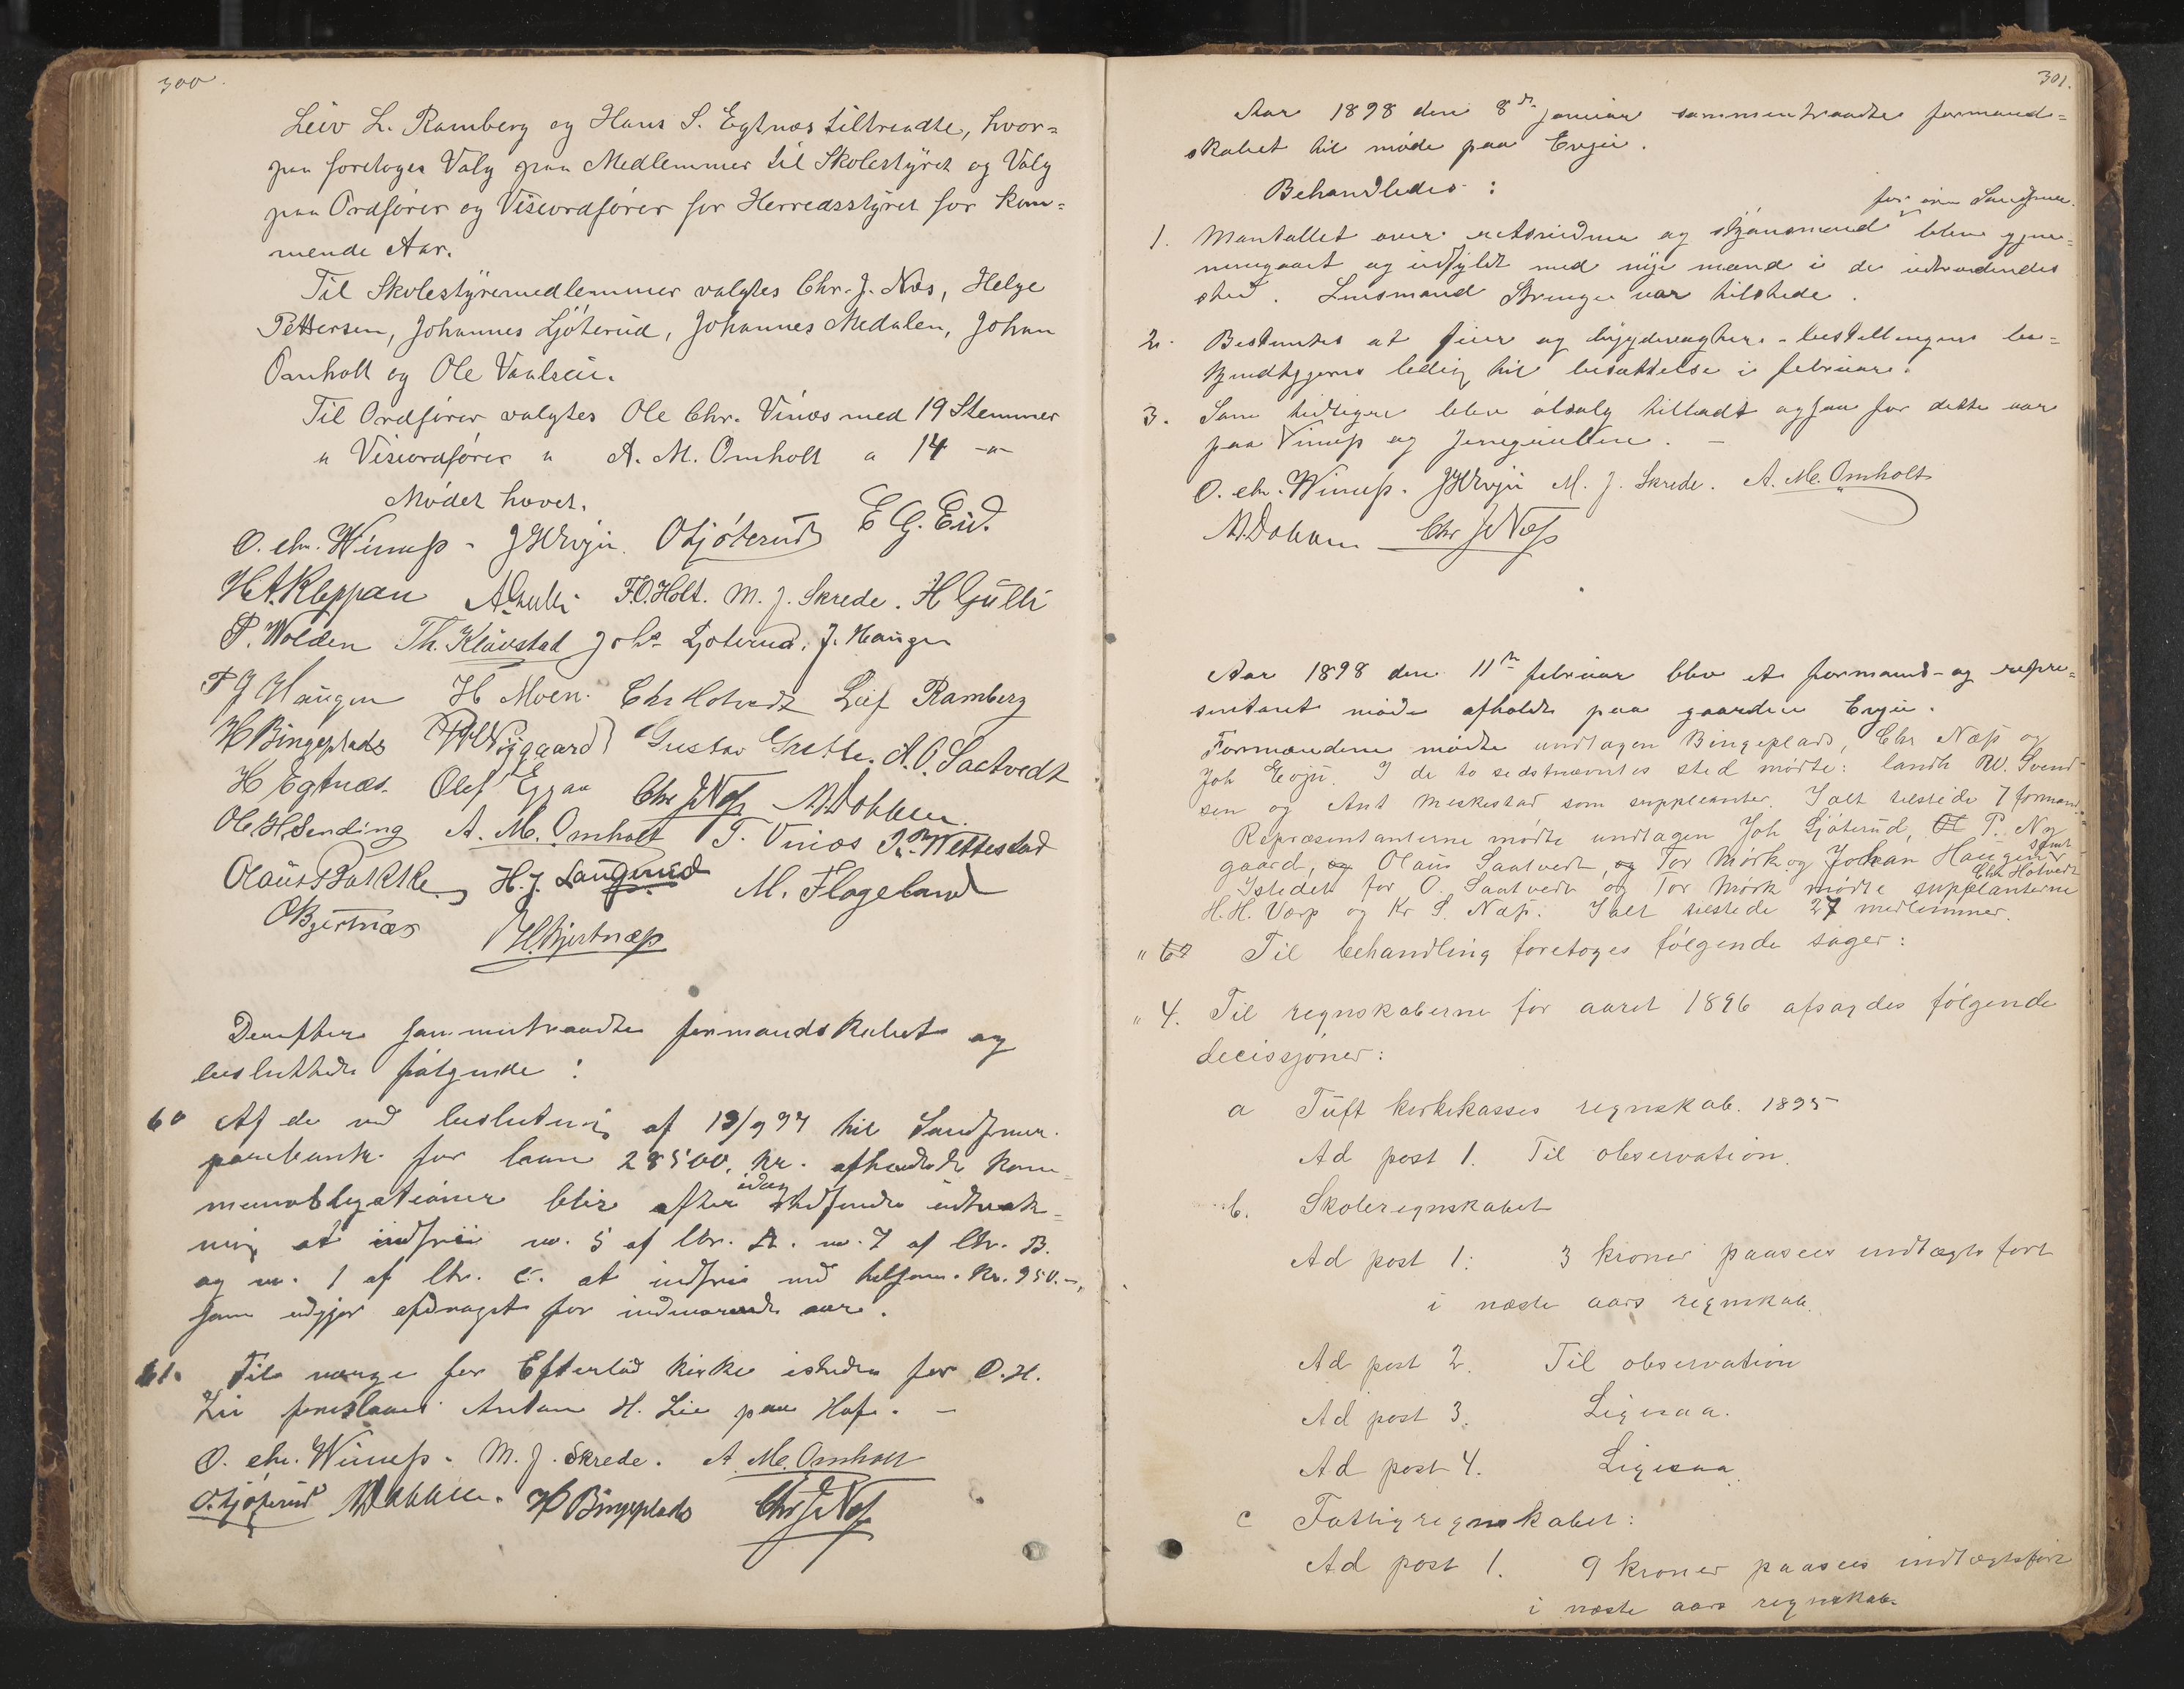 300.
Leiv L. Ramberg og Hans S. Egtnæs tiltraadte, hvor=
paa foretoges Valg paa Medlemmer til Skolestyret og Valg
paa Ordfører og Viseordfører for Herredsstyret for kom=
mende Aar.
Til Skolestyremedlemmer valgtes Chr. J. Næs, Helge
Pettersen, Johannes Ljøterud, Johannes Medalen, Johan
Omholt og Ole Vaalsen.
Til Ordfører valgtes Ole Chr. Vinæs med 19 Stemmer
" Viseordfører " A. M. Omholt " 14 -"-
Mødet hævet.
O. Chr. Winæss. J H Evju. O Ljøterud E G. Eid.
H A. Kleppan A. Gulli F. O. Holt. M. J. Skrede. H Gulli
P. Wolden Th. Klavstad Johs Ljøterud. J. Haugen
P J Haugen H Moen. Chr Hotvedt Leif Ramberg
H Bingeplads P W Nygaard Gustav Grette. A. O. Saatvedt
H Egtnæs. Olef Eggaa Chr J Næss A. Dokken.
Ole H Sending A. M. Omholt T. Vinæs Kr. Wettestad
Olaus Bakke H. J. Langerud M. Flageland
O Bjertnæs H. Bjertnæss
Derefter sammentraadte formandskabet og
besluttede følgende:
60 Af de ved beslutning af 13/9 97 til Sandsvær
sparebank for laan 28500, kr. afhændede kom=
muneobligationer blir efter idag stedfunden udtræk=
ning at indfrie no. 5 af ltr. A. no. 7 af ltr. B.
og no. 1 af ltr. C. at indfrie med tilsam. kr. 950.-,
som udgjør afdraget for indeværende aar.
61. Til værge for Efteløt kirke isteden for O. H.
Lie foreslaaes Anton H. Lie paa Hof. –
O. Chr. Winæss. M. J. Skrede. A. M. Omholt
O. Ljøterud A. Dokken. H Bingeplads Chr J Næss
301.
Aar 1898 den 8de januar sammentraadte formand=
skabet til møde paa Evju.
Behandledes:
for øvre Sandsvær
1. Mantallet over retsvidner og skjønsmænd blev gjen=
nemgaaet og udfyldt med nye mænd i de udtrædendes
sted. Lensmand Stenger var tilstede.
2. Bestemtes at feier og bygdevægter-bestillingens be=
kjendtgjøres ledig til besættelse i februar.
3. Som tidligere blev ølsalg tilladt ogsaa for dette aar
paa Vinæss og Jerngruben. –
O. Chr. Winæss. J H Evju M. J. Skrede. A. M. Omholt
A. Dokken Chr J Næss
Aar 1898 den 11te februar blev et formands- og repre=
sentant møde afholdt paa gaarden Evju.
Formændene mødte undtagen Bingeplads, Chr Næss og
Joh Evju. I de to sidstnævntes sted mødte: landh W. Svend-
sen og Ant Meskestad som suppleanter. Ialt tilstede 7 formænd.
Repræsentanterne mødte undtagen Joh Ljøterud, P. Ny
gaard, Olaus Saatvedt, Tor Mørk og Johan Haugen samt
Chr Hotvedt
Istedet for O. Saatvedt og Tor Mørk mødte suppleanterne
H. H. Værp og Kr S. Næss. Ialt tilstede 27 medlemmer.
" Til behandling foretoges følgende sager:
" 4. Til regnskaberne for aaret 1896 afsagdes følgende
decissjoner:
a Tuft kirkekasses regnskab. 1895
Ad post 1. Til observation.
b. Skoleregnskabet
Ad post 1: 3 kroner paasees indtægts ført
i næste aars regnskab.
Ad post 2. Til observation
Ad post 3. Ligesaa.
Ad post 4. Ligesaa.
c Fattigregnskabet:
Ad post 1. 9 kroner paasees indtægtsført
i næste aars regnskab